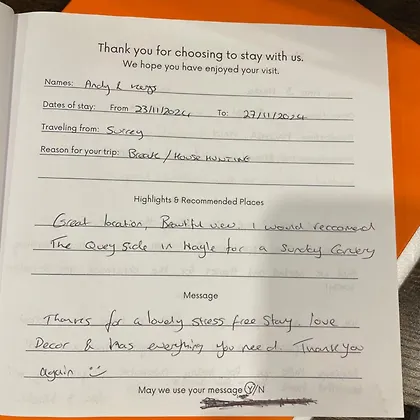 Thank you for choosing to stay with us.
We hope you have enjoyed your visit.
Names: Andy &
Dates of stay: From 23/11/2024 To: 27/11/2024
Traveling from: Surrey
Reason for your trip: Break / House HUNTING
Highlights & Recommended Places
Great location, Beautiful view. I would reccomend
The Quay Side in Hayle for a Sunday Carvery
Message
Thanks for a lovely stress free stay. love
Decor & Has everything you need. Thank you
again :)
May we use your message Y/N